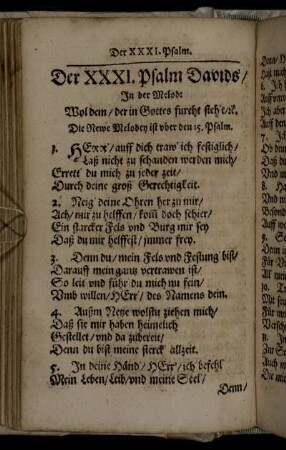 Der XXXI. Psalm.
Der XXXI. Psalm Davids/
In der Melod:
Wol dem/ der in Gottes furcht steh't/ꝛc.
Die Newe Melodey ist vber den 15. Psalm.
1. HErr/ auff dich traw' ich festiglich/
Laß nicht zu schanden werden mich/
Errett' du mich zu jeder zeit/
Durch deine groß Gerechtigkeit.
2. Neig' deine Ohren her zu mir/
Ach/ mir zu helffen/ kom̃ doch schier/
Ein starcker Fels vnd Burg mir sey
Daß du mir helffest/ jmmer frey.
3. Denn du/ mein Fels vnd Festung bist/
Darauff mein gantz vertrawen ist/
So leit vnd führ du mich nu fein/
Vmb willen/ HErr/ des Namens dein.
4. Außm Netze wolstu ziehen mich/
Daß sie mir haben heimelich
Gestellet/ vnd da zubereit/
Denn du bist meine sterck' allzeit.
5. In deine Händ'/ HErr/ ich befehl'
Mein Leben/ Leib/ vnd meine Seel/
Denn/